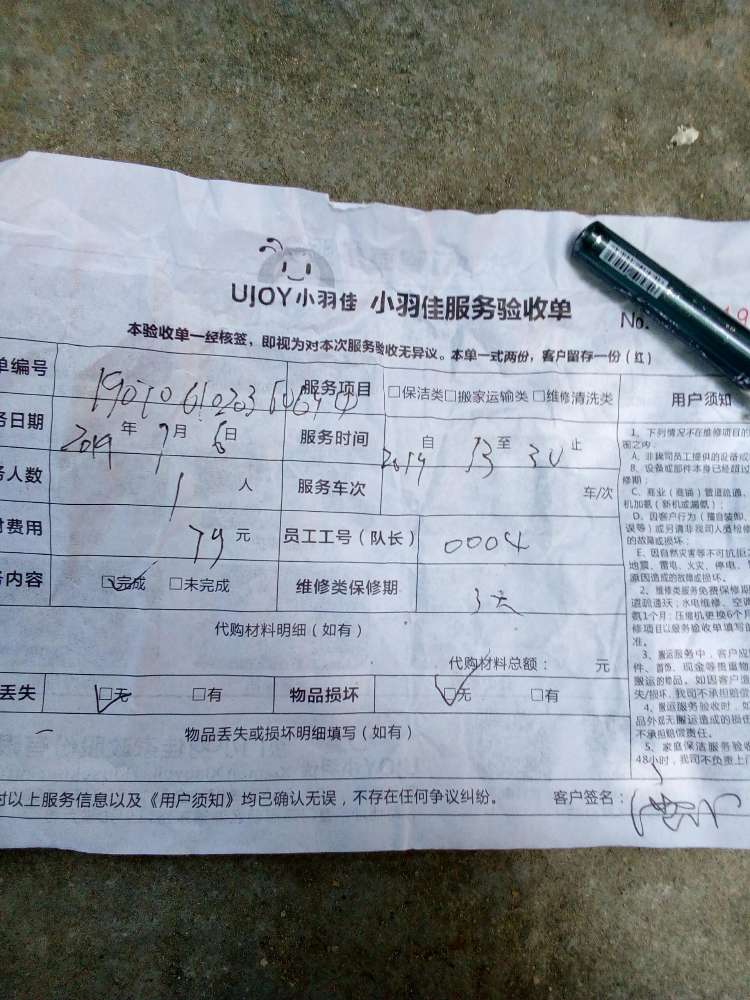 UJOY小羽佳 小羽佳服务验收单 No.
本验收单一经核签，即视为对本次服务验收无异议。本单一式两份，客户留存一份（红）
单编号 服务项目 □保洁类□搬家运输类 □维修清洗类 用户须知
务日期 2019年7月6日 服务时间 自 13 至 30 止
务人数 1 人 服务车次 车/次
费用 79元 员工工号（队长） 0004
务内容 □完成 □未完成 维修类保修期 3天
代购材料明细（如有）
代购材料总额： 元
丢失 □无 □有 物品损坏 □无 □有
物品丢失或损坏明细填写（如有）
对以上服务信息以及《用户须知》均已确认无误，不存在任何争议纠纷。 客户签名：
1、下列情况不在维修项目的
围之内：
A、非我司员工提供的设备或
B、设备或部件本身已经超过
修期；
C、商业（商铺）管道疏通、
机加氨（新机或漏氨）；
D、因客户行为（擅自装卸、
误等）或另请非我司人员检修
的故障或损坏；
E、因自然灾害等不可抗拒
地震、雷电、火灾、停电、
原因造成的故障或损坏。
2、维修类服务免费保修期
道疏通3天；水电维修、空
氨1个月；压缩机更换6个
修项目以服务验收单填写
准。
3、搬运服务中，客户应
件、首饰、现金等贵重物
搬运的物品。如因客户遗
失/损坏，我司不承担赔偿
4、搬运服务验收时，如
品外或无搬运造成的损
不承担赔偿责任。
5、家庭保洁服务验收
48小时，我司不负责上门